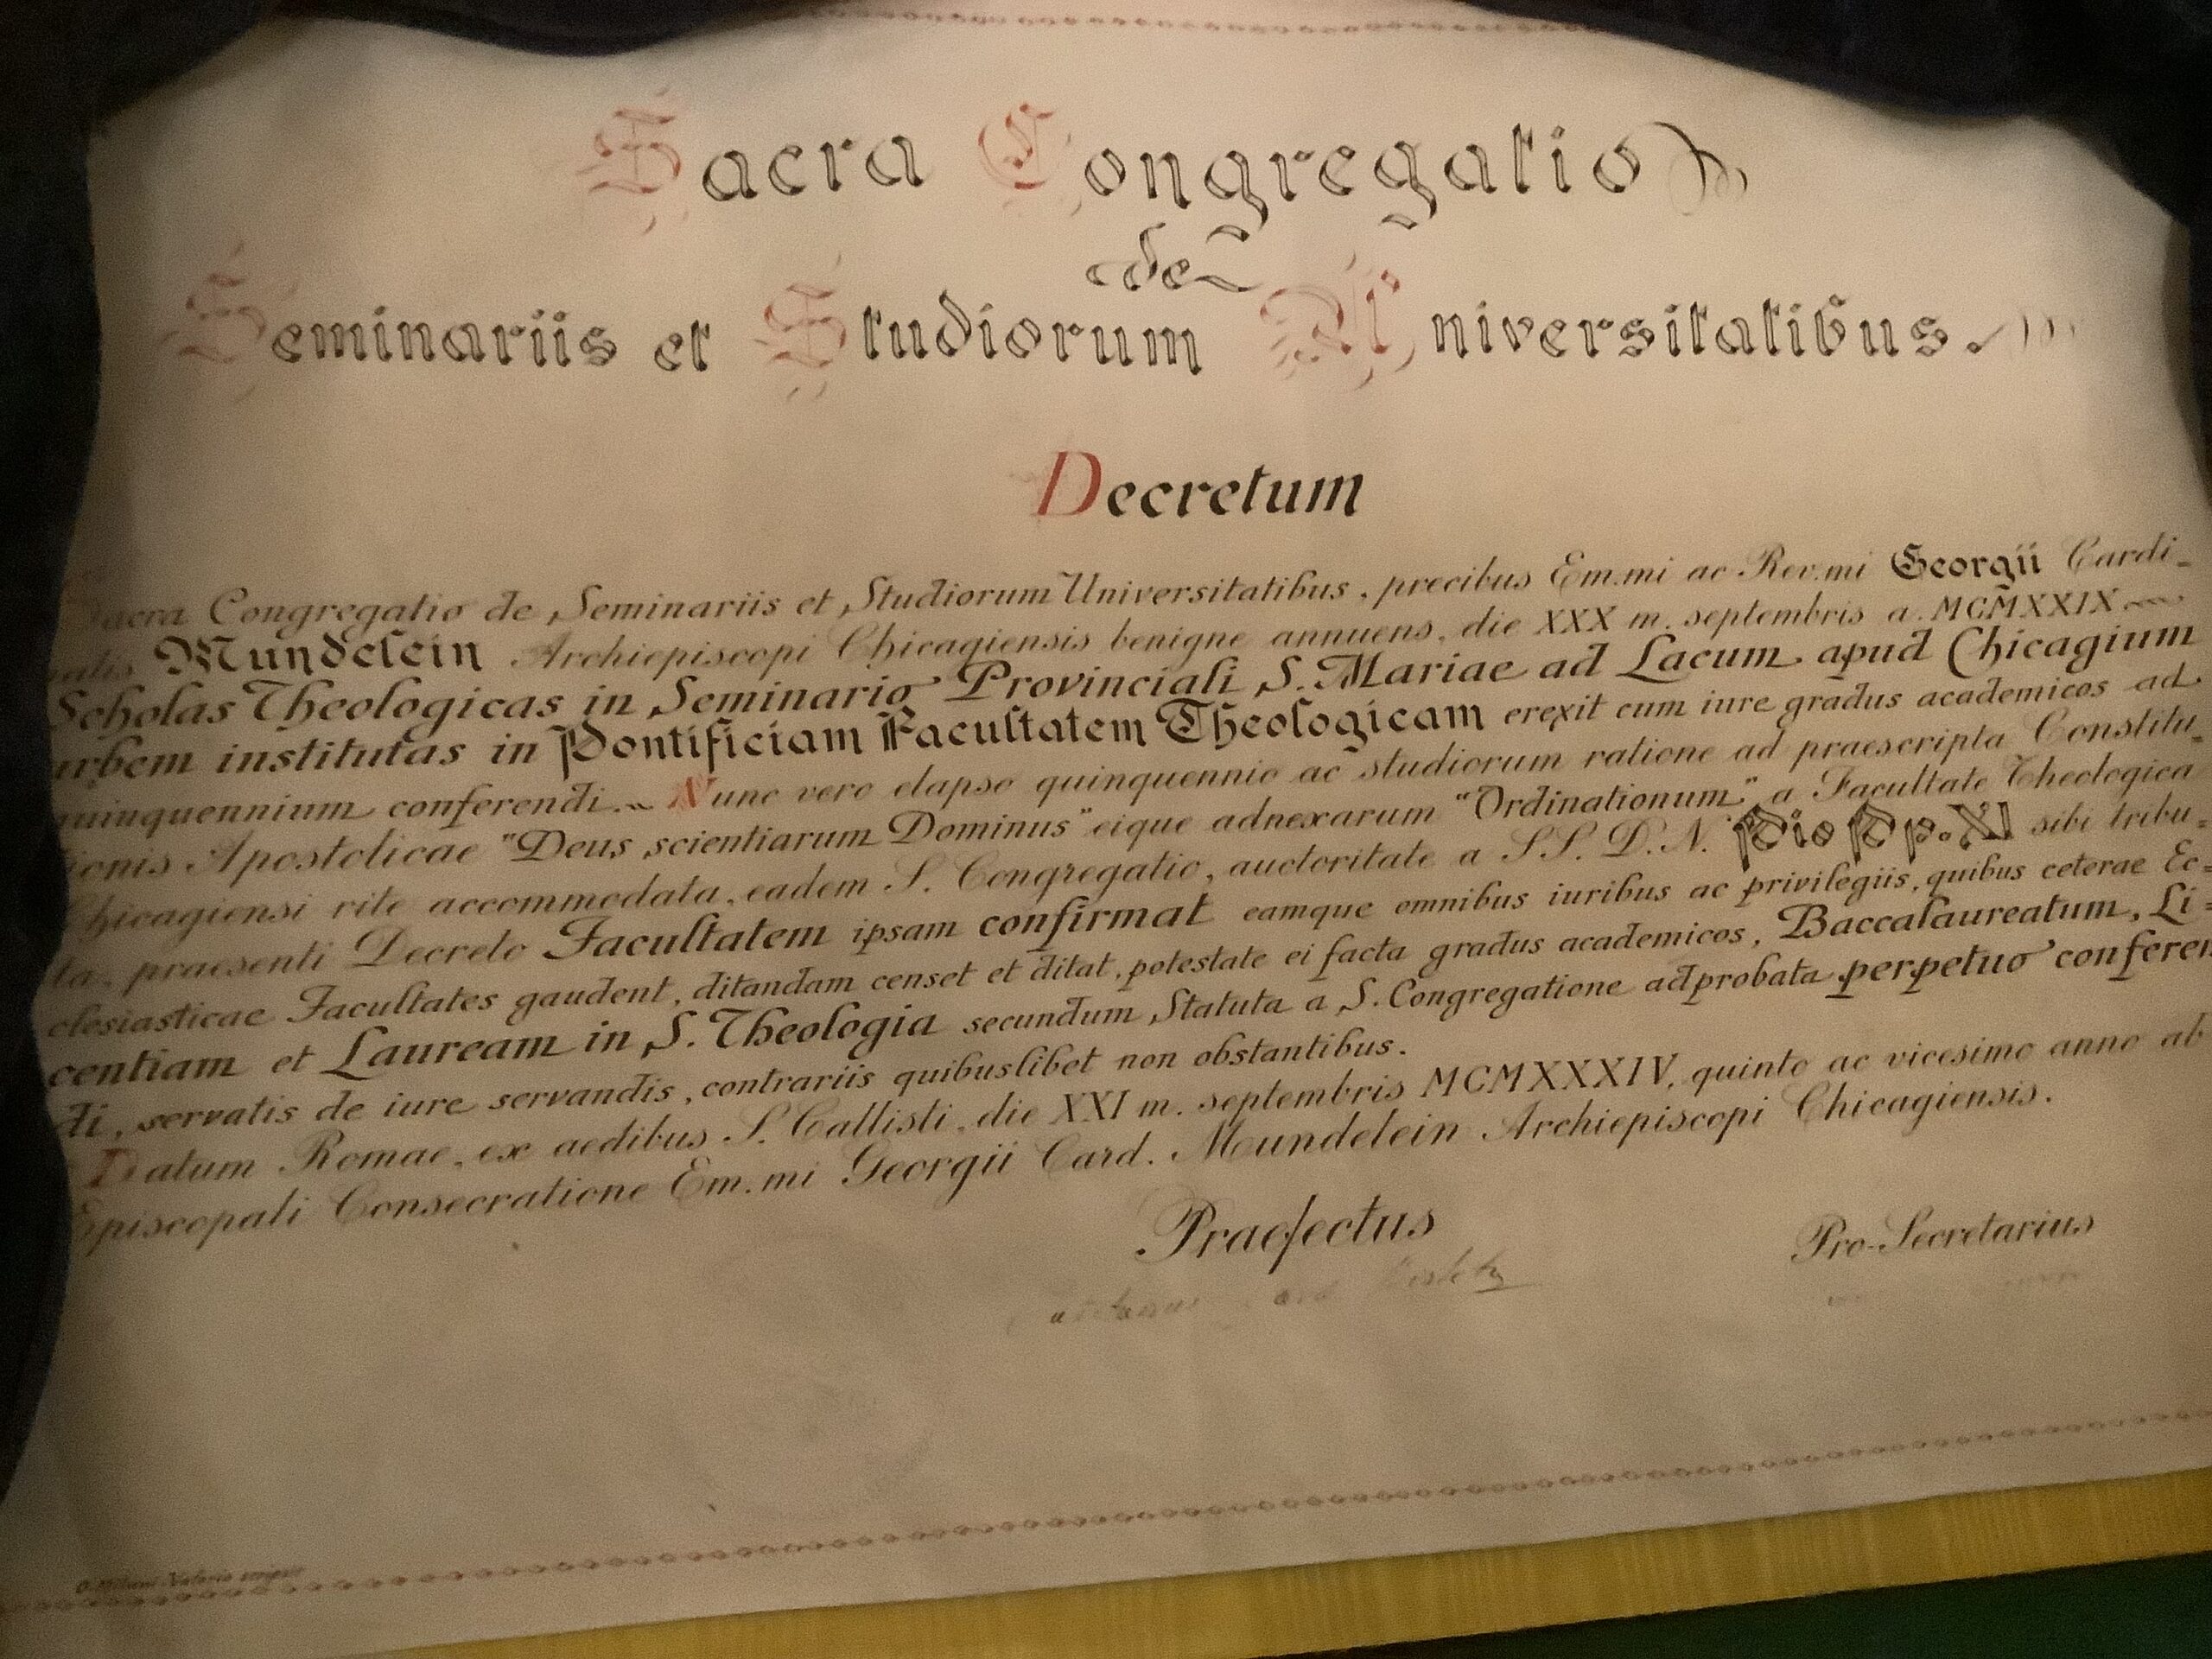 Sacra Congregatio
de
Seminariis et Studiorum Universitatibus.
Decretum
Sacra Congregatio de Seminariis et Studiorum Universitatibus, precibus Em.mi ac Rev.mi Georgii Cardi-
nalis Mundelein Archiepiscopi Chicagiensis benigne annuens, die XXX m. septembris a. MCMXXIX
Scholas Theologicas in Seminario Provinciali S. Mariae ad Lacum apud Chicagium
urbem institutas in Pontificiam Facultatem Theologicam erexit cum iure gradus academicos ad
quinquennium conferendi. Nunc vero elapso quinquennio ac studiorum ratione ad praescripta Constitu-
ionis Apostolicae "Deus scientiarum Dominus" eique adnexarum "Ordinationum" a Facultate Theologica
Chicagiensi rite accommodata, eadem S. Congregatio, auctoritate a SS. D. N. Pio Pp. XI sibi tribu-
ta, praesenti Decreto Facultatem ipsam confirmat eamque omnibus iuribus ac privilegiis, quibus ceterae Ec-
clesiasticae Facultates gaudent, ditandam censet et ditat, potestate ei facta gradus academicos, Baccalaureatum, Li-
centiam et Lauream in S. Theologia secundum Statuta a S. Congregatione adprobata perpetuo conferen
di, servatis de iure servandis, contrariis quibuslibet non obstantibus.
Datum Romae, ex aedibus S. Callisti, die XXI m. septembris MCMXXXIV, quinto ac vicesimo anno ab
Episcopali Consecratione Em.mi Georgii Card. Mundelein Archiepiscopi Chicagiensis.
Praefectus
Pro-Secretarius